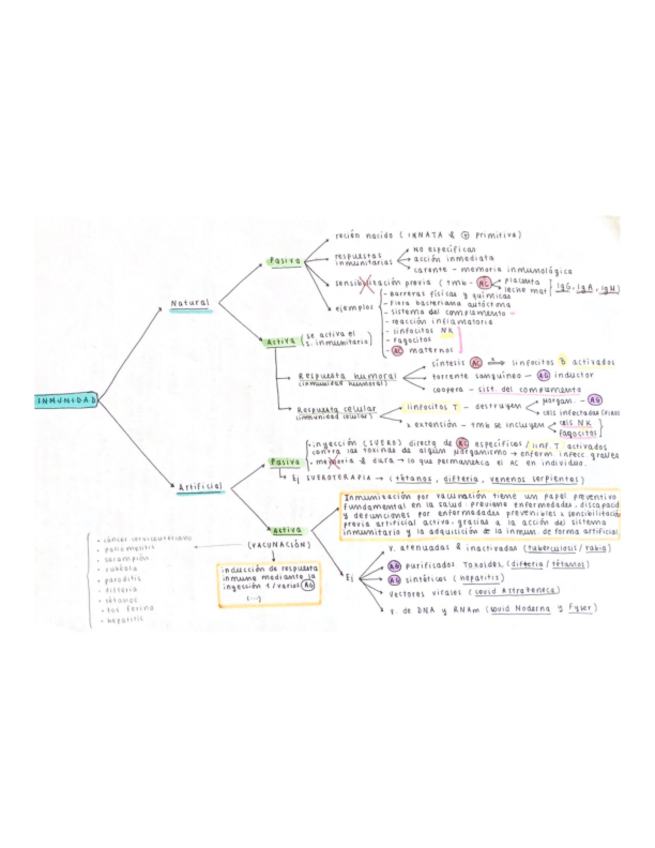 recién nacido (INNATA & ⊕ primitiva)
Pasiva
respuestas
inmunitarias
no específicas
acción inmediata
carente - memoria inmunológica
sensibilización previa (tmb - AC
placenta
leche mat
IgG, IgA, IgM)
ejemplos
- Barreras físicas y químicas
- Flora bacteriana autóctona
- sistema del complemento
- reacción inflamatoria
- linfocitos NK
- Fagocitos
- AC maternos
Natural
Activa (se activa el
s. inmunitario)
Respuesta humoral
(inmunidad humoral)
síntesis AC → linfocitos B activados
torrente sanguíneo - AG inductor
coopera - sist. del complemento
INMUNIDAD
Respuesta celular
(inmunidad celular)
linfocitos T - destruyen
µorgan. - AG
cels infectadas
x extensión - tmb se incluyen
cels NK
Fagocitos
Artificial
Pasiva
- inyección (SUERO) directa de AC específicos / linf. T activados
contra las toxinas de algún µorganismo → enferm. infecc graves
- memoria & dura → lo que permanezca el AC en individuo.
Ej SUEROTERAPIA → (tétanos, difteria, venenos serpientes)
Activa
(VACUNACIÓN)
Inmunización por vacunación tiene un papel preventivo
fundamental en la salud: previene enfermedades, discapacid
y defunciones por enfermedades prevenibles x sensibilización
previa artificial activa, gracias a la acción del sistema
inmunitario y la adquisición de la inmun. de forma artificial
- cáncer cervicouterino
- poliomelitis
- sarampión
- rubéola
- parotitis
- difteria
- tétanos
- tos ferina
- hepatitis
inducción de respuesta
inmune mediante la
ingesión 1/varios AG
(...)
Ej
v. atenuadas & inactivadas (tuberculosis / rabia)
AG purificados Toxoides (difteria / tétanos)
AG sintéticos (hepatitis)
Vectores virales (covid Astrazeneca)
v. de DNA y RNAm (covid Moderna y Fyser)